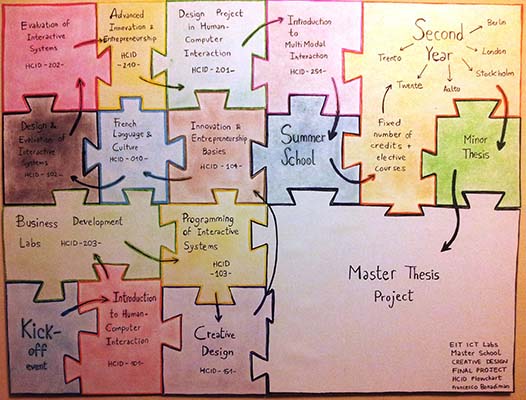 Evaluation of
Interactive
Systems
HCID-202-
Advanced
Innovation &
Entrepreneurship
HCID
-210-
Design Project
in Human-
Computer
Interaction
HCID-201-
Introduction
to
Multi Modal
Interaction
HCID-251-
Second
Year
Berlin
London
Stockholm
Aalto
Twente
Trento
Fixed
number of
credits +
elective
courses
Minor
Thesis
Design &
Evaluation of
Interactive
Systems
HCID-102-
French
Language &
Culture
HCID-010-
Innovation &
Entrepreneurship
Basics
HCID-104-
Summer
School
Business Development
Labs HCID-203-
Programming
of Interactive
Systems
HCID
-103-
Master Thesis
Project
Kick-
off
event
Introduction
to Human-
Computer
Interaction
HCID-101-
Creative
Design
HCID-151-
EIT ICT Labs
Master School
CREATIVE DESIGN
FINAL PROJECT
HCID Flowchart
Francesco Bonadiman